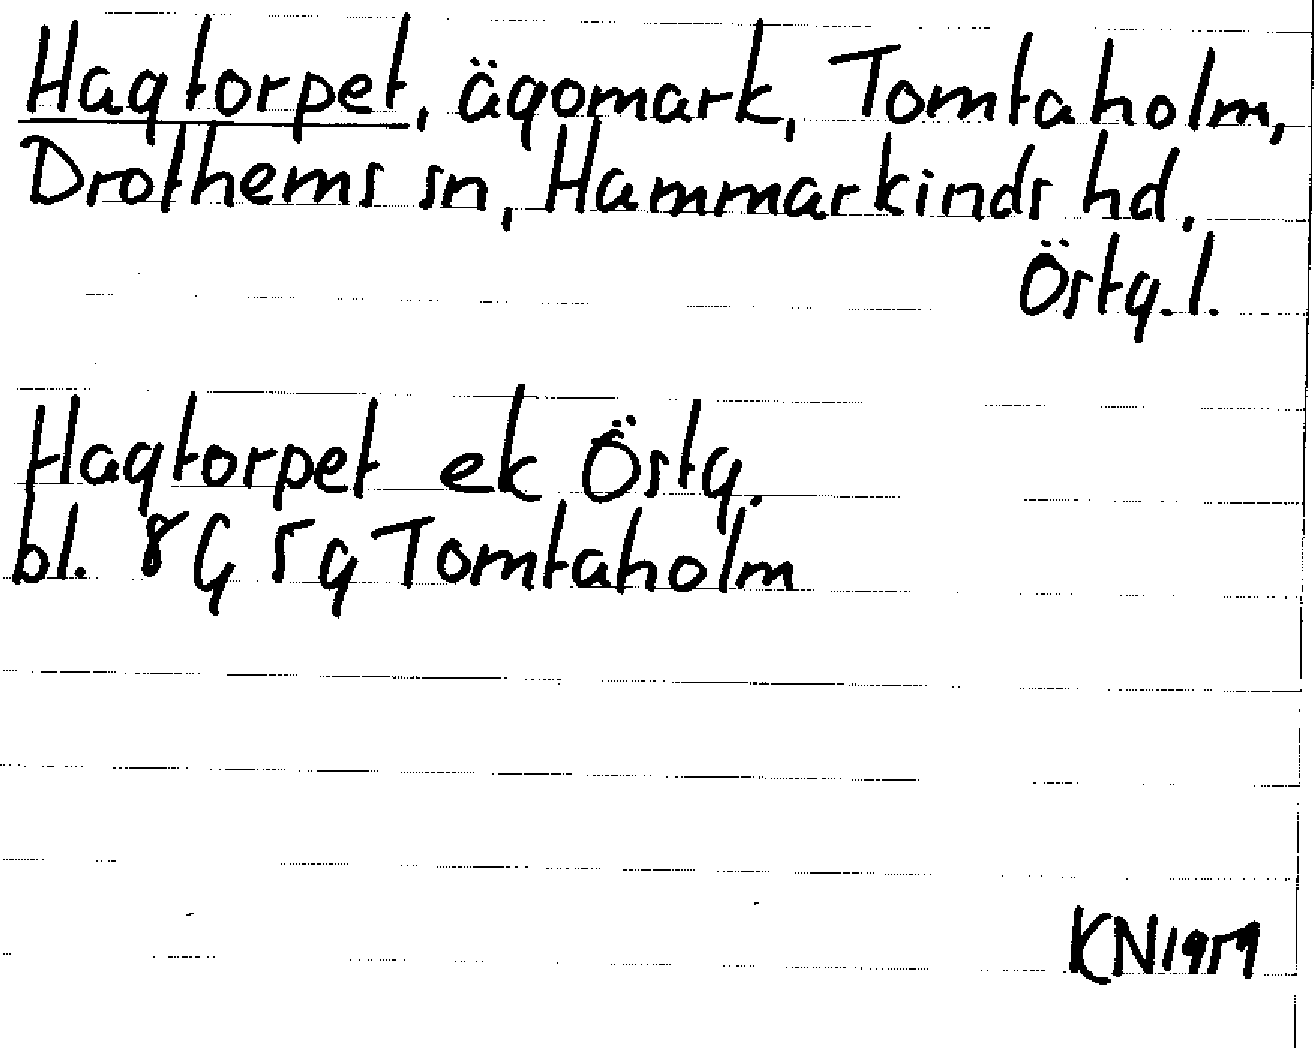 Hagtorpet, ägomark, Tomtaholm,
Drothems sn, Hammarkinds hd.
Östg. l.
Hagtorpet ek Östg.
bl. 8G 5g Tomtaholm
KN1959